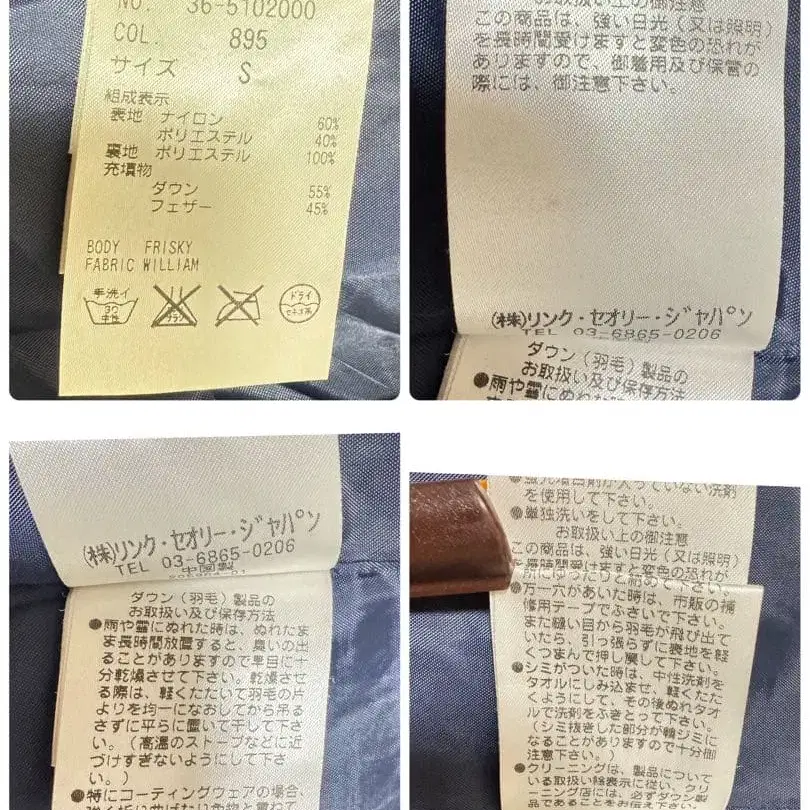 NO. 36-5102000
COL. 895
サイズ S
組成表示
表地 ナイロン 60%
ポリエステル 40%
裏地 ポリエステル 100%
充填物
ダウン 55%
フェザー 45%
BODY FRISKY
FABRIC WILLIAM
手洗イ
30
中性
ドライ
セキユ系
お取扱い上の御注意
この商品は、強い日光(又は照明)
を長時間受けますと変色の恐れが
ありますので、御着用及び保管の
際には、御注意下さい。
(株)リンク・セオリー・ジャパン
TEL 03-6865-0206
ダウン(羽毛)製品の
お取扱い及び保存方法
●雨や霧にぬれた
(株)リンク・セオリー・ジャパン
TEL 03-6865-0206
中国製
ダウン(羽毛)製品の
お取扱い及び保存方法
●雨や霧にぬれた時は、ぬれたま
ま長時間放置すると、臭いの出
ることがありますので早目に十
分乾燥させて下さい。乾燥させ
る際は、軽くたたいて羽毛の片
よりを均一になおしてから吊る
さずに平らに置いて干して下さ
い。(高温のストーブなどに近
づけすぎないようにして下さ
い。)
●特にコーティングウェアの場合、
●蛍光増白剤が入っていない洗剤
を使用して下さい。
●単独洗いをして下さい。
お取扱い上の御注意
この商品は、強い日光(又は照明)
を長時間受けますと変色の恐れが
●万一穴があいた時は、市販の補
修用テープでふさいで下さい。
また縫い目から羽毛が飛び出て
いたら、引っ張らずに表地を軽
くつまんで押し戻して下さい。
●シミがついた時は、中性洗剤を
タオルにしみ込ませ、軽くたた
くようにして、その後ぬれタオ
ルで洗剤をふきとって下さい。
(シミ抜きした部分が輪ジミに
なることがありますので十分御
注意下さい。)
●クリーニングは、製品について
いる取扱い絵表示に従い、クリ
ーニング店には、必ずダウン製
品であることをお伝え下さい。